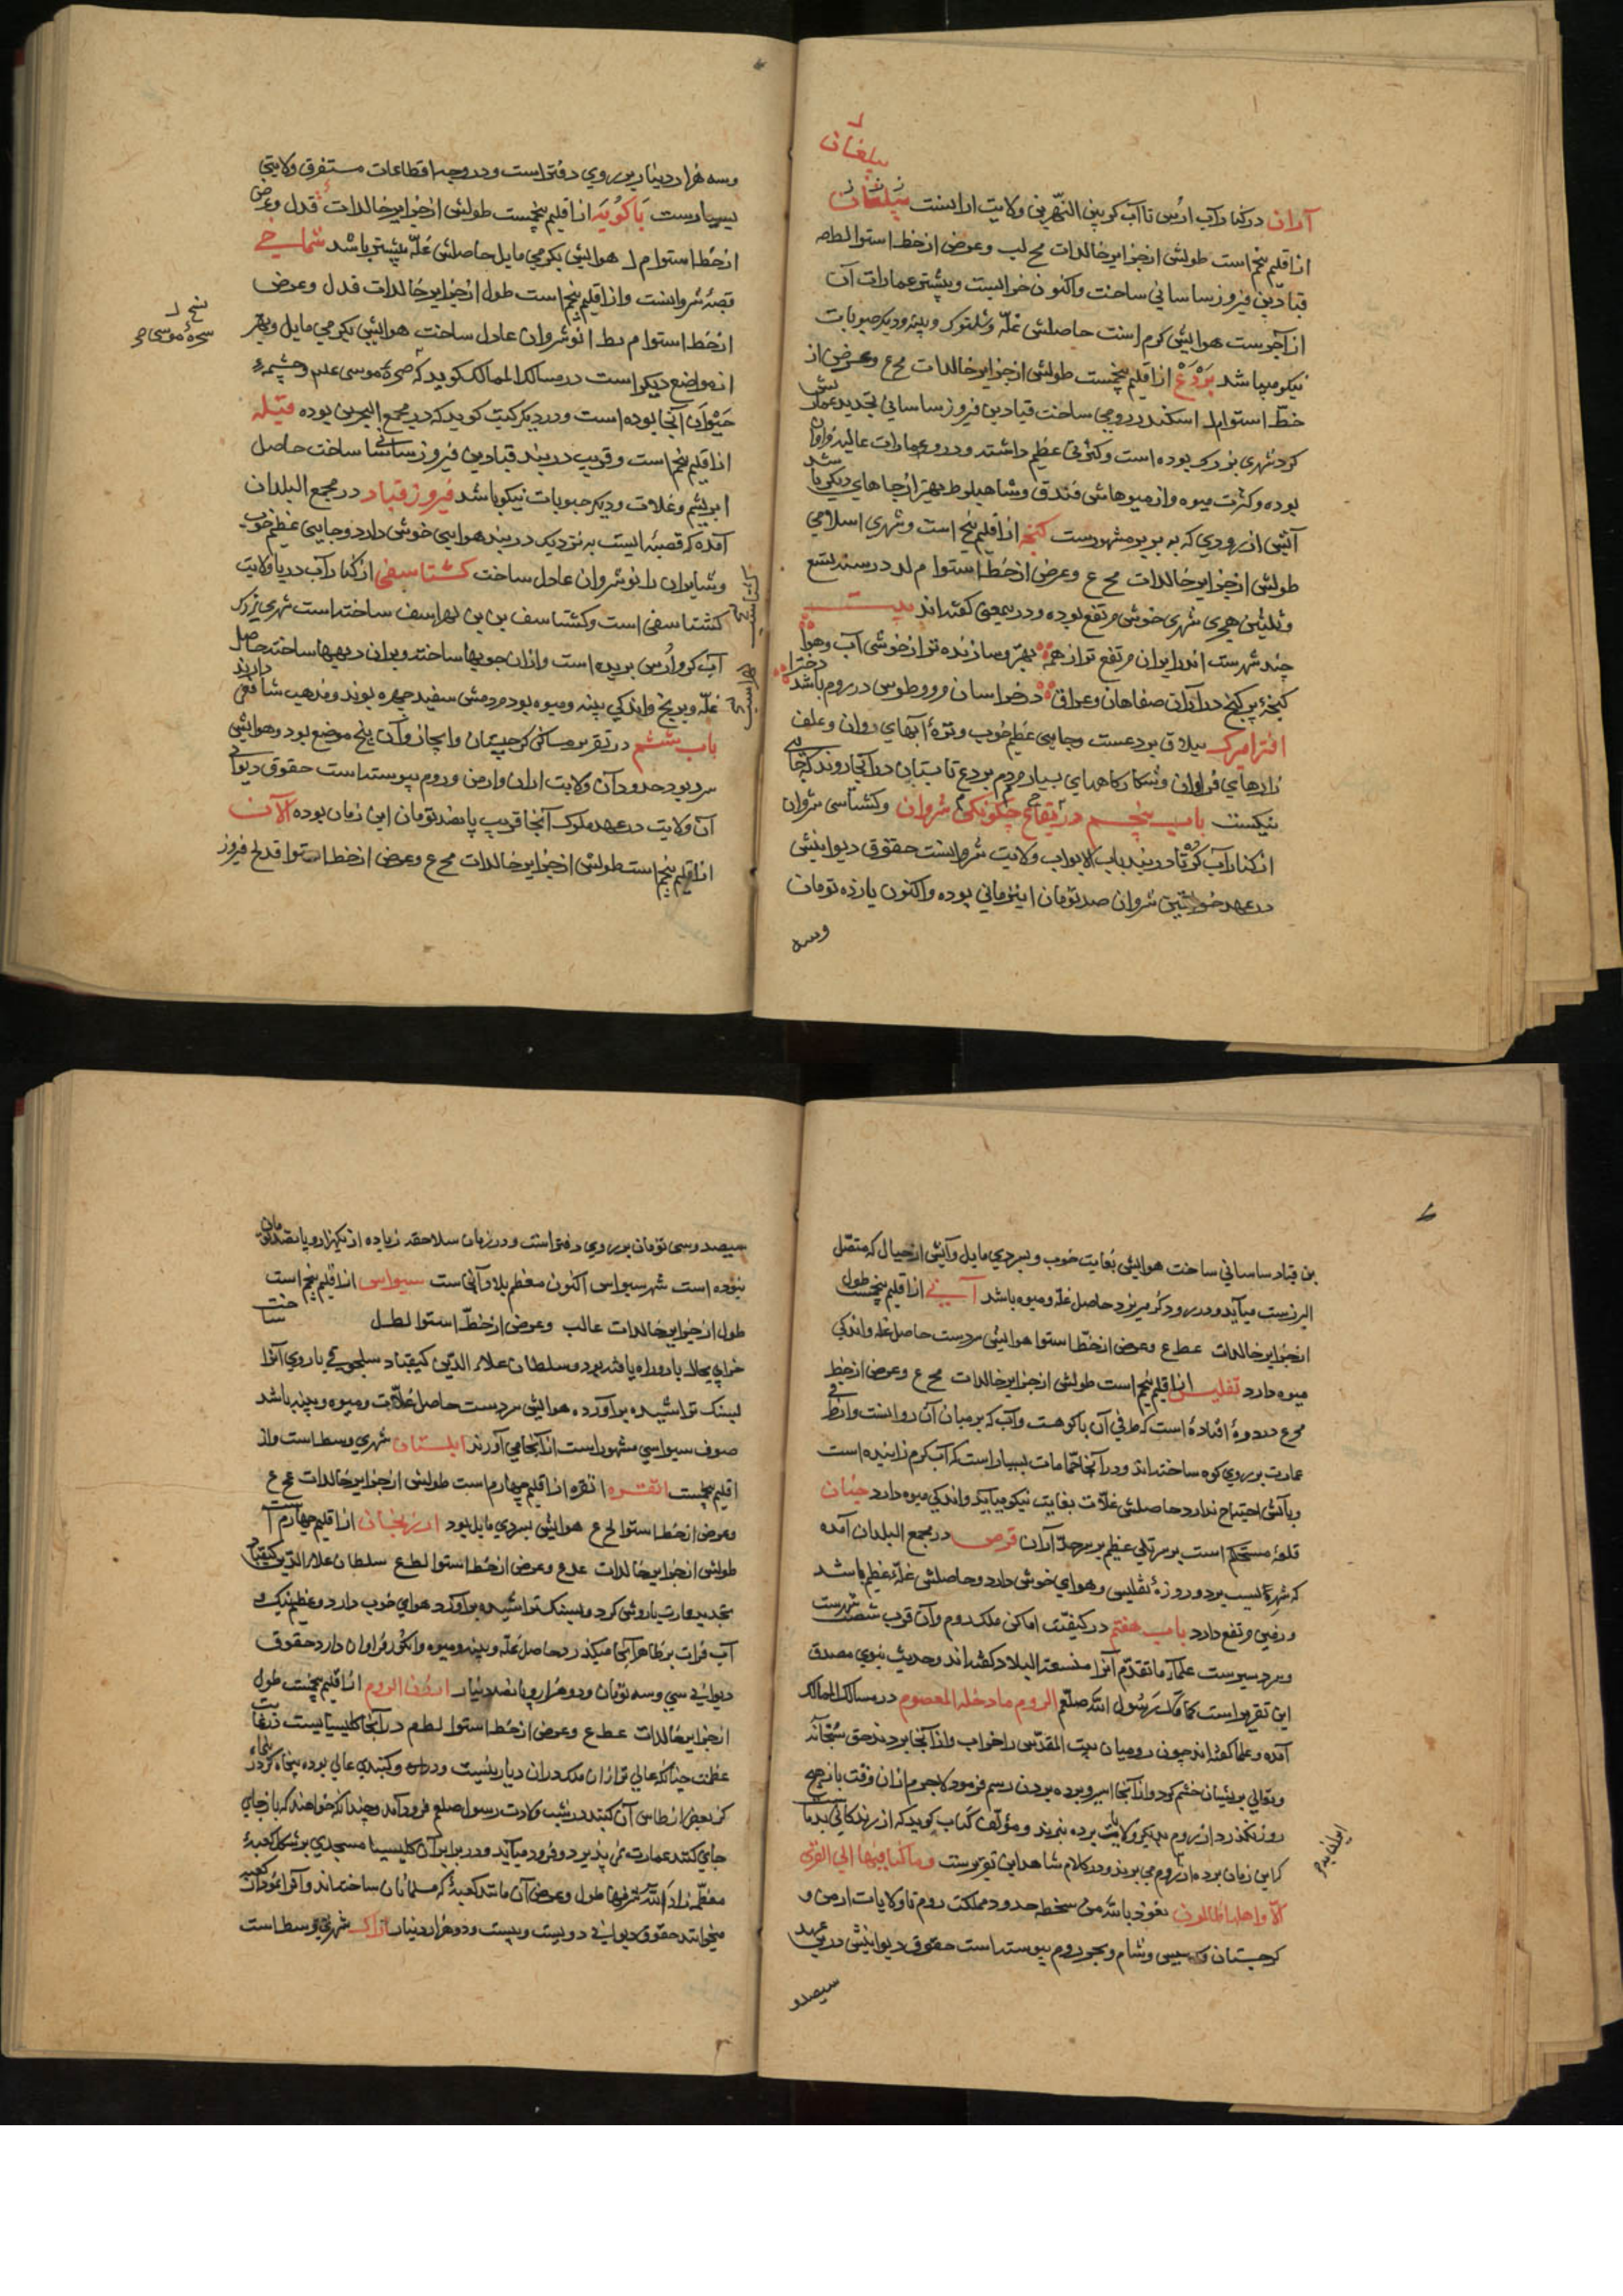 بیلقان
آران در کنار آب ارس تا آب کر بین النهرین ولایت ارانست بیلقان
از اقلیم پنجم است طولش از جزایر خالدات مح لب و عرض از خط استوا لطم
قباد بن فیروز ساسانی ساخت و اکنون خرابست و بیشتر عمارات آن
از آجرست هوایش گرم است حاصلش غله و شلتوک و پنبه و دیگر حبوبات
نیکو میباشد بردع از اقلیم پنجمست طولش از جزایر خالدات مح ع و عرض از
خط استوا م اسکندر رومی ساخت قباد بن فیروز ساسانی تجدید عمارتش
کرد شهری بزرک بوده است و کثرتی عظیم داشته و درو عمارات عالیه فراوان
بوده و کثرت میوه و از میوهاش فندق و شاهبلوط بهتر از جاهای دیگر باشد
آبش از رودی که به بربر مشهورست گنجه از اقلیم پنجم است و شهری اسلامی
طولش از جزایر خالدات مح ع و عرض از خط استوا م لد در سنه تسع
و ثلثین هجری شهری خوش و مرتفع بوده و درین معنی گفته اند بیت
چند شهرست اندر ایران مرتفع تر از همه بهتر و سازنده تر از خوشی آب و هوا
گنجه پر گنج در اران صفاهان در عراق در خراسان مرو و طوس در روم باشد
افترامرک ییلاق بردعست و جایی عظیم خوب و نزه آبهای روان و علف
زارهای فراوان و شکارگاههای بسیار مردم بردع تابستان در آنجا روند که جای
نیکست باب پنجم در بقاع چگونگی شروان و گشتاسفی شروان
از کنار آب کر تا دربند باب الابواب ولایت شروانست حقوق دیوانیش
در عهد خواقین شروان صد تومان این زمانی بوده و اکنون یازده تومان
وسه
وسه هزار دینار بر روی دفتر است و در وجه اقطاعات متفرق ولایتی
بسیارست باکویه از اقلیم پنجمست طولش از جزایر خالدات فدل و عرض
از خط استوا م ل هوایش بگرمی مایل حاصلش غله بیشتر باشد شماخی
قصبه شروانست و از اقلیم پنجم است طول از جزایر خالدات فدل و عرض
از خط استوا م بط انوشروان عادل ساخت هوایش بگرمی مایل و بهتر
از مواضع دیگر است در مسالک الممالک گوید که صخره موسی علم و چشمه
حیوان آنجا بوده است و در دیگر کتب گوید که در مجمع البحرین بوده قبله
از اقلیم پنجم است و قریب دربند قباد بن فیروز ساسانی ساخت حاصل
ابریشم و غلات و دیگر حبوبات نیکو باشد فیروز قباد در مجمع البلدان
آمده که قصبه ایست به نزدیک دربند هوایی خوش دارد و جایی عظیم خوب
و شابران را نوشروان عادل ساخت گشتاسفی از کنار آب دریا ولایت
گشتاسفی است و گشتاسف بن لهراسف ساخته است شهری بزرک
آب کر و ارس بریده است و از آن جویها ساخته و بران دیهها ساخته حاصل
غله و برنج و اندکی پنبه و میوه بود مردمش سفید چهره بوند و مذهب شافعی دارند
باب ششم در تقریر مساکن گرجستان و ابخاز و آن پنج موضع بود و هوایش
سرد بود حدود آن ولایت اران و ارمن و روم پیوسته است حقوق دیوانی
آن ولایت در عهد ملوک آنجا قریب پانصد تومان این زمان بوده الان
از اقلیم پنجم است طولش از جزایر خالدات مح ع و عرض از خط استوا قدلح فیروز
نخ ل
صخره موسی
گشتاسب
لهراسب
بن قباد ساسانی ساخت هوایش بغایت خوب و بسردی مایل و آبش از جبال که متصل
البرزست میآید و در رود کر میریزد حاصل غله و میوه باشد آنی از اقلیم پنجمست طول
از جزایر خالدات عط ع و عرض از خط استوا هوایش سردست حاصل غله و اندکی
میوه دارد تفلیس از اقلیم پنجم است طولش از جزایر خالدات مح ع و عرض از خط
مح ع در دره افتاده است که طرفی آن با کوهست و آب کر بر میان آن روانست و از طرفی
عمارت بر روی کوه ساخته اند و در آنجا حمامات بسیار است که آب گرم زاینده است
و بآتش احتیاج ندارد حاصلش غلات بغایت نیکو میآید و اندکی میوه دارد خنان
قلعه مستحکم است بر سر تلی عظیم بر سرحد آران قرص در مجمع البلدان آمده
که شهر کیست بر دو روزه تفلیس و هوای خوش دارد و حاصلش غله عظیم باشد
و زمین مرتفع دارد باب هفتم در کیفیت اماکن ملک روم و آن قرب شصت شهرست
و سردسیرست علماء ما تقدم آنرا منسعة البلاد گفته اند و حدیث نبوی مصدق
این تقریر است کما قال رسول الله صلعم الروم ما دخله المعصوم در مسالک الممالک
آمده و علما گفته اند چون رومیان بیت المقدس را خراب و از آنجا بردند حق سبحانه
و تعالی بر ایشان خشم گرفت و از آنجا اسیر و برده بردن رسم فرمود لاجرم از آن وقت باز هیچ
روز نگذرد از روم بدیگر ولایت برده نبرند و مؤلف کتاب گوید که از زندگانی بد ماست
که این زمان برده از روم می برند و در کلام شاهد این تقریرست و ما کنا فیها الی القری
الا و اهلها ظالمون نعوذ بالله من سخطه حدود مملکت روم تا ولایات ارمن و
گرجستان و سیس و شام و بحر روم پیوسته است حقوق دیوانیش درین عهد
سیصد و
سیصد و سی تومان بر روی دفتر است و در زمان سلاجقه زیاده از یکهزار و پانصد تومان
بوده است شهر سیواس اکنون معظم بلاد آنجاست سیواس از اقلیم پنجم است
طول از جزایر خالدات عالب و عرض از خط استوا لطل
خرابی بحال بارو راه یافته بود و سلطان علاء الدین کیقباد سلجوقی باروی آنرا
بسنک تراشیده برآورد هوایش سردست حاصل غلات و میوه و پنبه باشد
صوف سیواسی مشهور است از آنجا می آورند ابلستان شهری وسط است و از
اقلیم پنجمست انقره انقره از اقلیم چهارم است طولش از جزایر خالدات عح ع
و عرض از خط استوا لح ع هوایش بسردی مایل بود ارزنجان از اقلیم چهارم است
طولش از جزایر خالدات عد ع و عرض از خط استوا لط ع سلطان علاء الدین کیقباد
تجدید عمارت باروش کرد و بسنک تراشیده برآورد هوای خوب دارد و عظیم نیک و
آب فرات بر ظاهر آنجا میگذرد حاصل غله و پنبه و میوه و انگور فراوان دارد حقوق
دیوانی سی و سه تومان و دو هزار و پانصد دینار ارزن الروم از اقلیم پنجمست طول
از جزایر خالدات عط ع و عرض از خط استوا لطم در آنجا کلیسیایست در غایت
عظمت چنانکه عالی تر از آن ملک در آن دیار نیست و در آن گنبدی عالی بوده پنجاه گز در پنجاه
گز بعض از طاس آن گنبد در شب ولادت رسول صلعم فرو آمد و چندانکه خواهند که باز جای
جای کنند عمارت نمی پذیرد و فرود میآید و در برابر آن کلیسیا مسجدی بر شکل کعبه
معظمه زاد الله شرفها طول و عرض آن مانند کعبه که مسلمانان ساخته اند و آنرا نمودار کعبه
میخوانند حقوق دیوانی دویست و بیست و دو هزار دینار اراک شهری وسط است